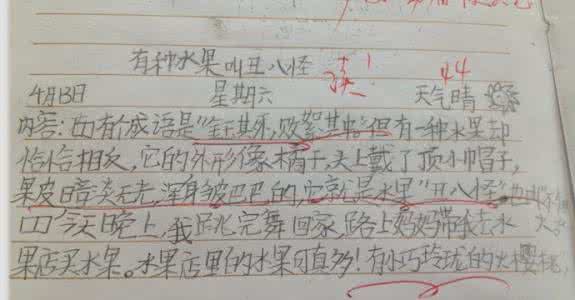 有种水果叫丑八怪
44
4月13日 星期六 天气晴
内容:有个成语是“金玉其外,败絮其中”但有一种水果却
恰恰相反,它的外形像橘子,头上戴了顶小帽子,
果皮暗淡无光,浑身皱巴巴的,它就是水果“丑八怪”
今天晚上,我跳完舞回家,路上妈妈带我去水
果店买水果。水果店里的水果可真多!有小巧玲珑的樱桃,